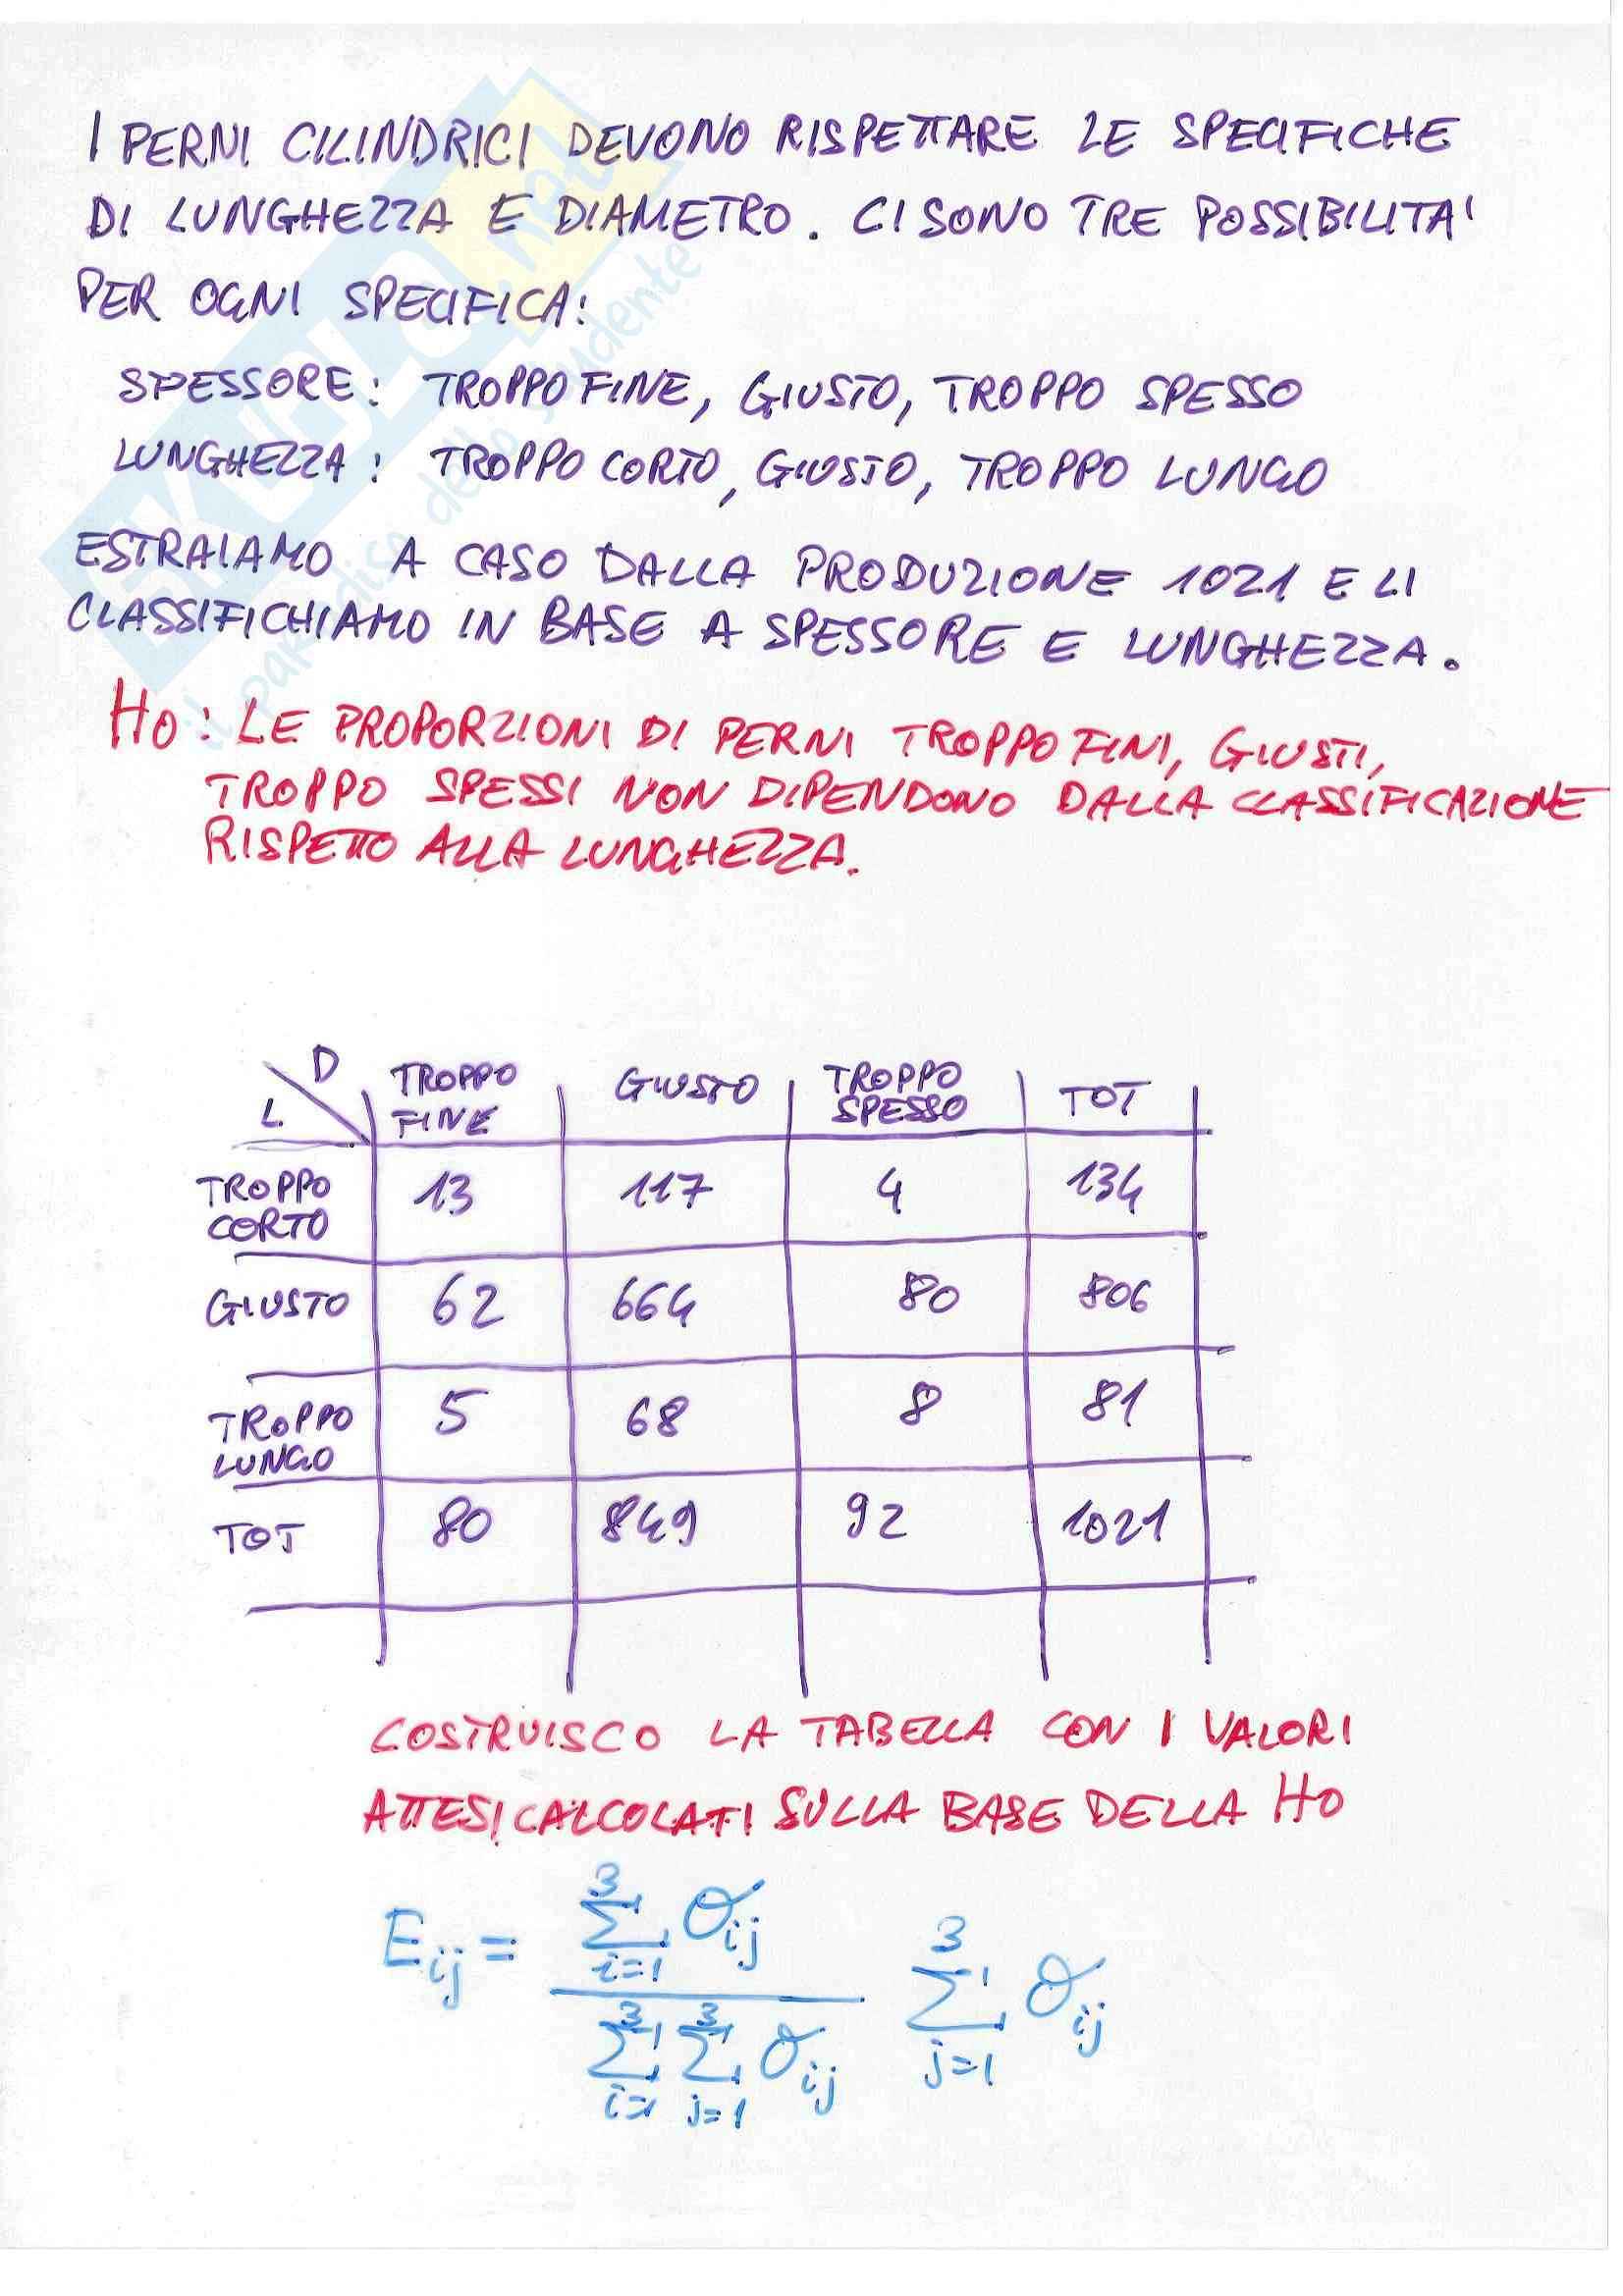 I PERNI CILINDRICI DEVONO RISPETTARE LE SPECIFICHE
DI LUNGHEZZA E DIAMETRO. CI SONO TRE POSSIBILITA'
PER OGNI SPECIFICA:
SPESSORE: TROPPO FINE, GIUSTO, TROPPO SPESSO
LUNGHEZZA: TROPPO CORTO, GIUSTO, TROPPO LUNGO
ESTRAIAMO A CASO DALLA PRODUZIONE 1021 E LI
CLASSIFICHIAMO IN BASE A SPESSORE E LUNGHEZZA.
H0: LE PROPORZIONI DI PERNI TROPPO FINI, GIUSTI,
TROPPO SPESSI NON DIPENDONO DALLA CLASSIFICAZIONE
RISPETTO ALLA LUNGHEZZA.
SKUOLA.net
il paradiso dello studente
L \ D TROPPO FINE GIUSTO TROPPO SPESSO TOT
TROPPO CORTO 13 117 4 134
GIUSTO 62 664 80 806
TROPPO LUNGO 5 68 8 81
TOT 80 849 92 1021
COSTRUISCO LA TABELLA CON I VALORI
ATTESI CALCOLATI SULLA BASE DELLA H0
E_ij = (∑_{i=1}^{3} O_ij) / (∑_{i=1}^{3} ∑_{j=1}^{3} O_ij) ∑_{j=1}^{3} O_ij